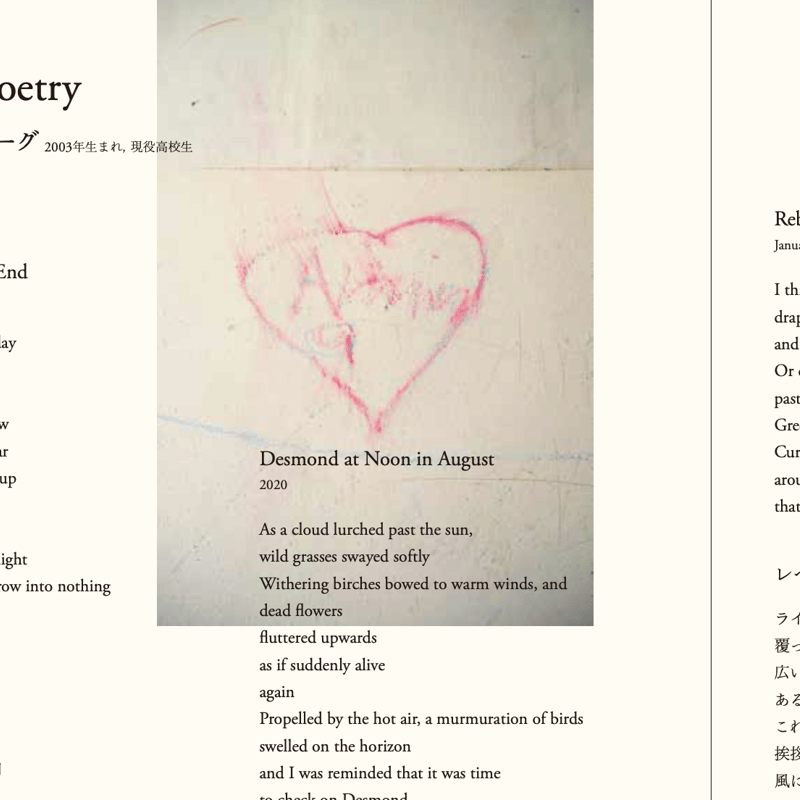 oetry
ーグ 2003年生まれ, 現役高校生
End
lay
w
ar
up
ight
row into nothing
Desmond at Noon in August
2020
As a cloud lurched past the sun,
wild grasses swayed softly
Withering birches bowed to warm winds, and
dead flowers
fluttered upwards
as if suddenly alive
again
Propelled by the hot air, a murmuration of birds
swelled on the horizon
and I was reminded that it was time
to check on Desmond
Reb
Janua
I th
drap
and
Or
past
Gre
Cur
arou
that
レ
ライ
覆っ
広い
ある
これ
挨拶
風に